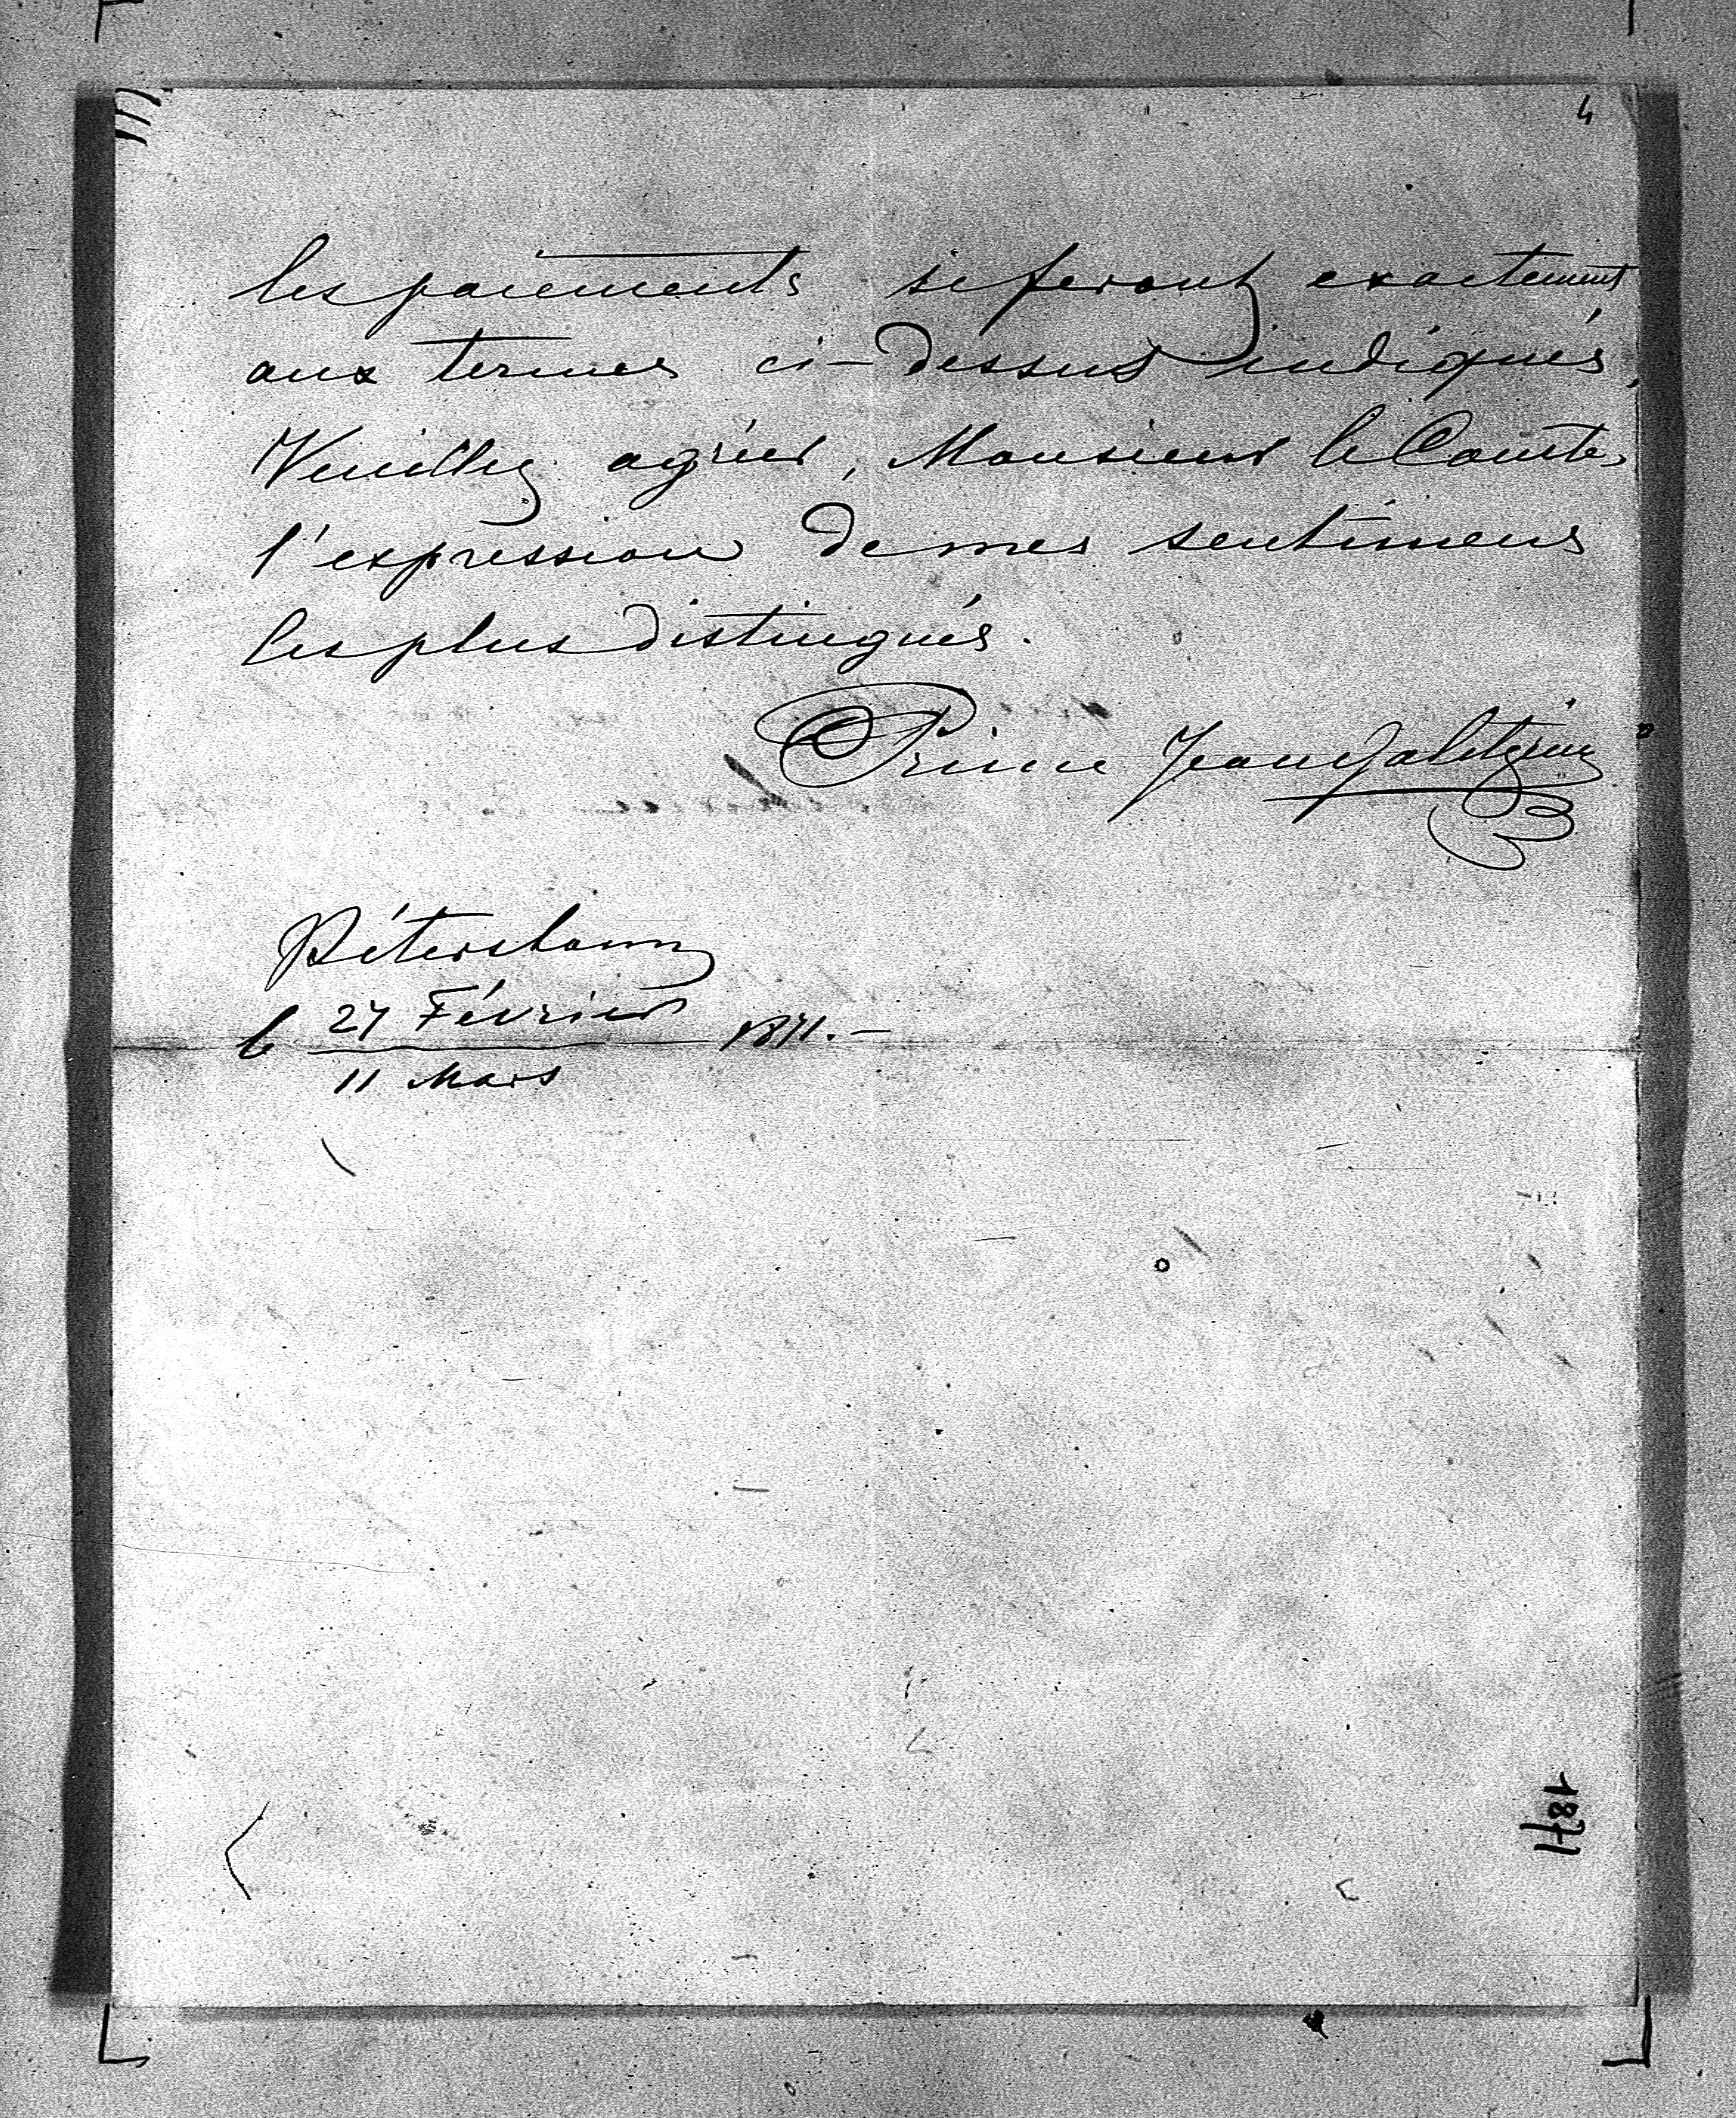 4
les paiements se feront exactement
aux termes ci-dessus indiqués.
Veuillez agréer, Monsieur le Comte,
l'expression de mes sentimens
les plus distingués.
Prince Jean Galitzin
Pétersbourg
le 27 Février 1871.-
11 Mars
1871